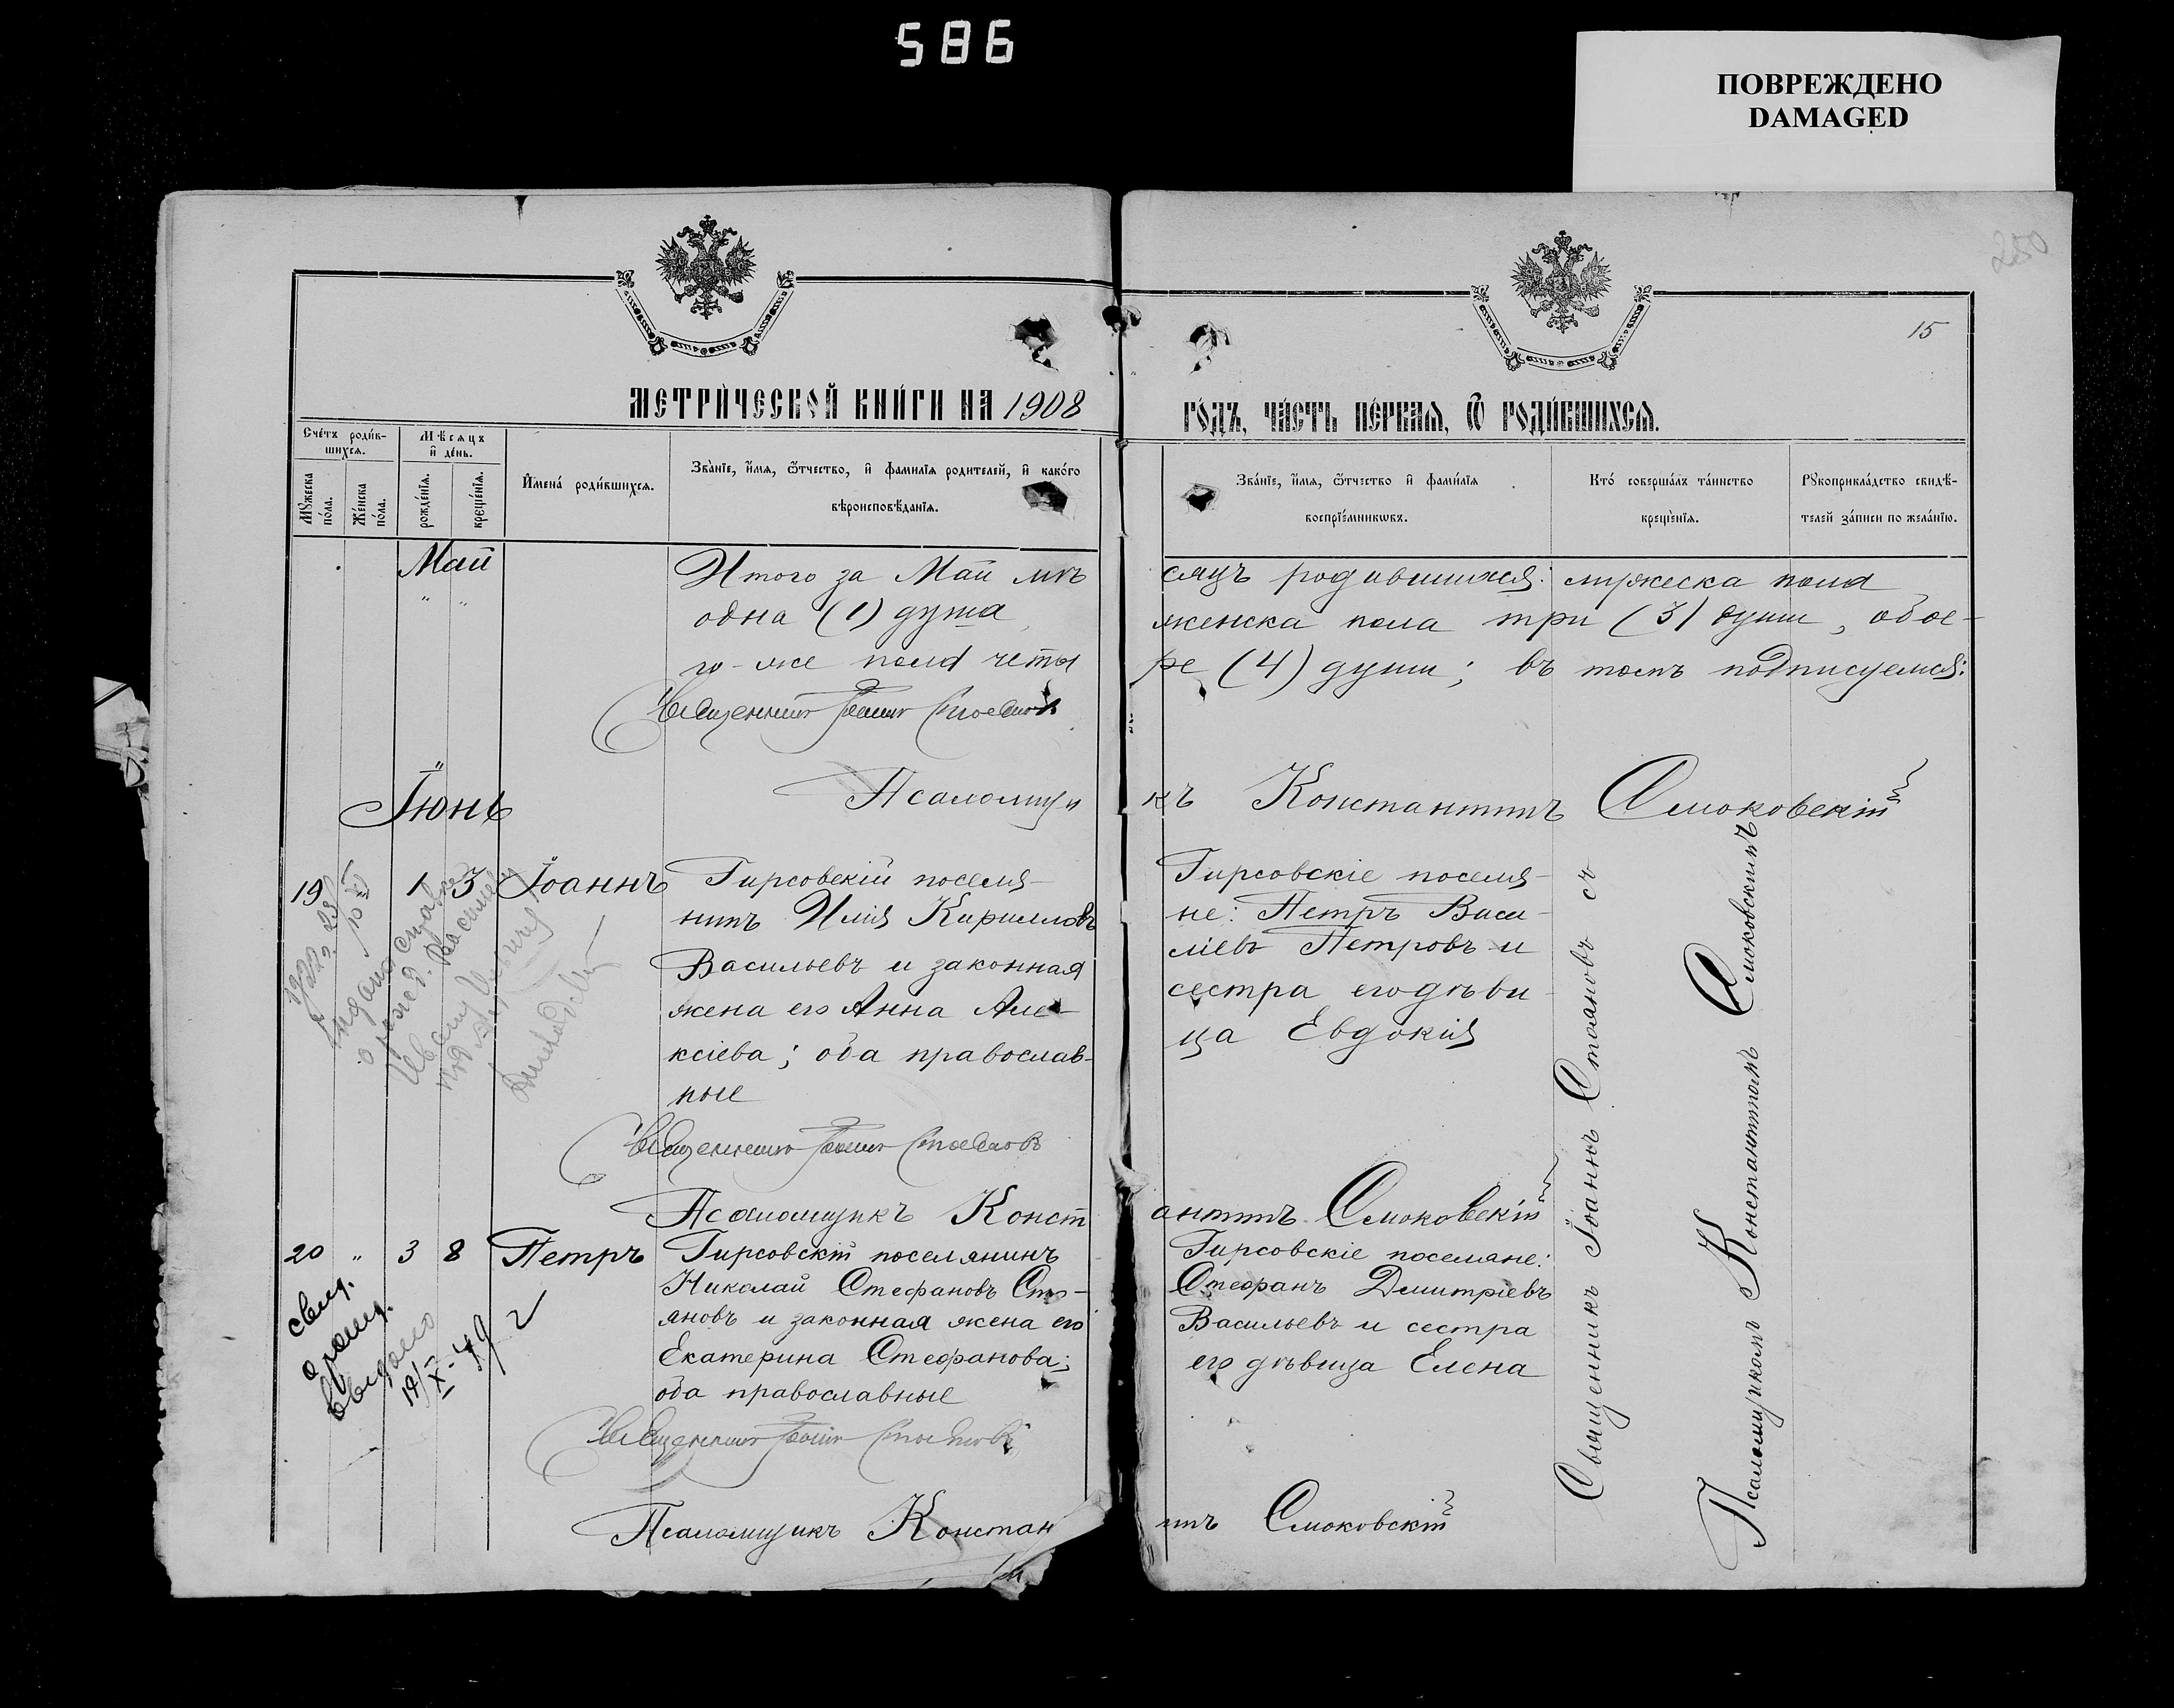 586
ПОВРЕЖДЕНО
DAMAGED
250
15
МЕТРИ́ЧЕСКОЙ КНИ́ГИ НА 1908
ГО́ДЪ, ЧА́СТЬ ПЕ́РВАЯ, Ѽ РОДИ́ВШИХСЯ.
Сче́тъ роди́в-
шихся.
Мѣсяцъ
и҆ де́нь.
Мꙋ́жеска
по́ла.
Же́нска
по́ла.
рожде́нїя.
креще́нїя.
И҆мена́ роди́вшихся.
Зва́нїе, и҆́мя, ѻ҆́тчество, и҆ фами́лїя родителей, и҆ како́го
вѣроисповѣ́данїя.
Зва́нїе, и҆́мя, ѻ҆́тчество и҆ фами́лїя
воспрїе́мникѡвъ.
Кто́ соверша́лъ та́инство
креще́нїя.
Рꙋкоприкла́дство свидѣ́-
телей за́писи по жела́нїю.
Май
" "
Итого за Май мѣ сяцъ родившихся: мужеска пола
одна (1) душа, женска пола три (3) души, обое-
го-же пола четы ре (4) души; въ томъ подписуемся:
Священникъ Іоаннъ Стояновъ
Псаломщи къ Константинъ Смоковскій
Іюнь
19 1 3 Іоаннъ
Гирсовскій поселя-
нинъ Илія Кирилловъ
Васильевъ и законная
жена его Анна Але-
ксіева; оба православ-
ные
Гирсовскіе поселя-
не: Петръ Васи-
ліевъ Петровъ и
сестра его дѣви-
ца Евдокія
1922 г. 23/
10
о рожд.
Ивану
Священникъ Іоаннъ Стояновъ
Псаломщикъ Конст антинъ Смоковскій
20 " 3 8 Петръ
Гирсовскій поселянинъ
Николай Стефановъ Сто-
яновъ и законная жена его
Екатерина Стефанова;
оба православные
Гирсовскіе поселяне:
Стефанъ Димитріевъ
Васильевъ и сестра
его дѣвица Елена
свид.
о рожд.
выдано
19/X-49
Священникъ Іоаннъ Стояновъ
Псаломщикъ Констан тинъ Смоковскій
Священникъ Іоаннъ Стояновъ съ
Псаломщикомъ Константиномъ Смоковскимъ